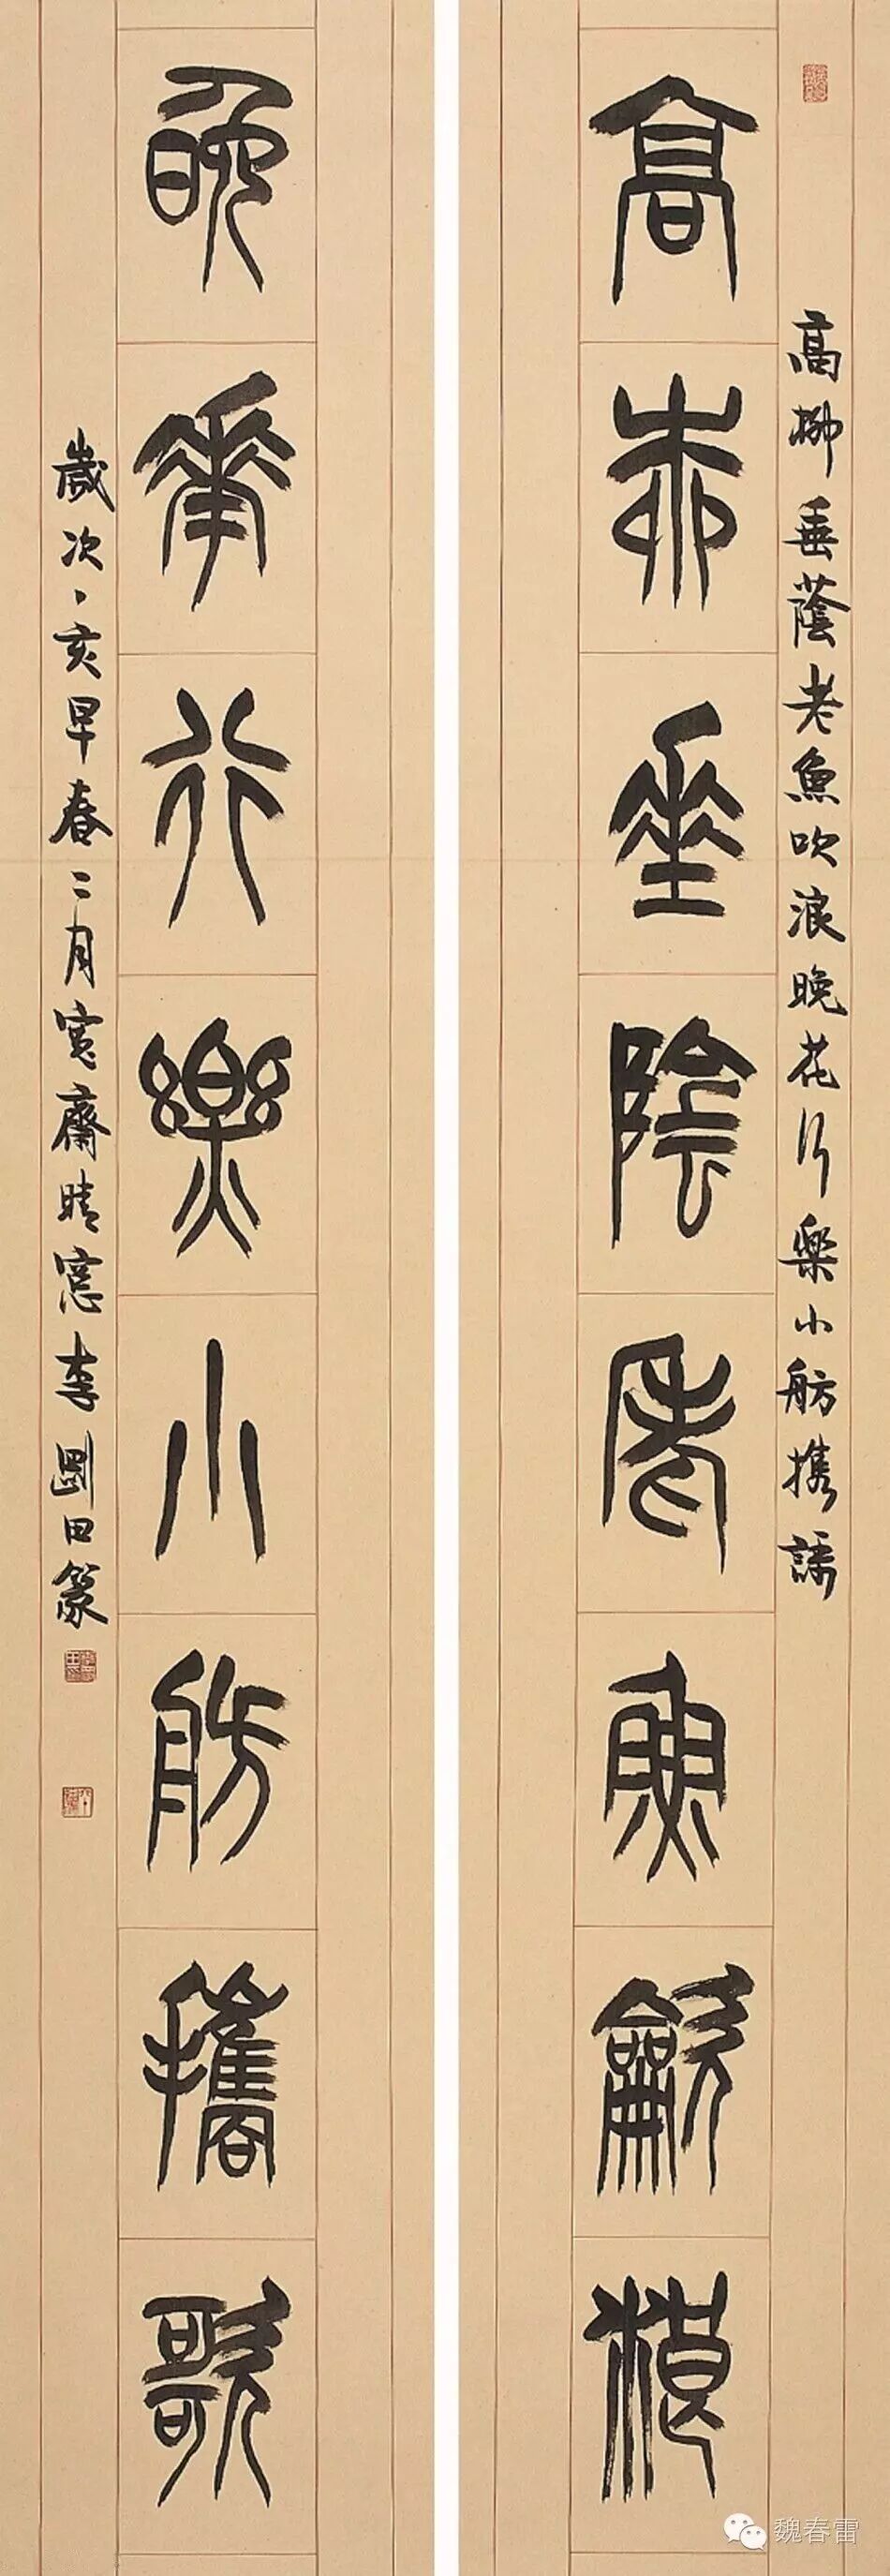 高柳垂蔭老魚吹浪晚花行樂小舫携謌
高柳垂陰老魚龡浪
晚華行樂小舫攜歌
歲次丁亥早春二月寬齋晴窓李剛田篆
魏春雷